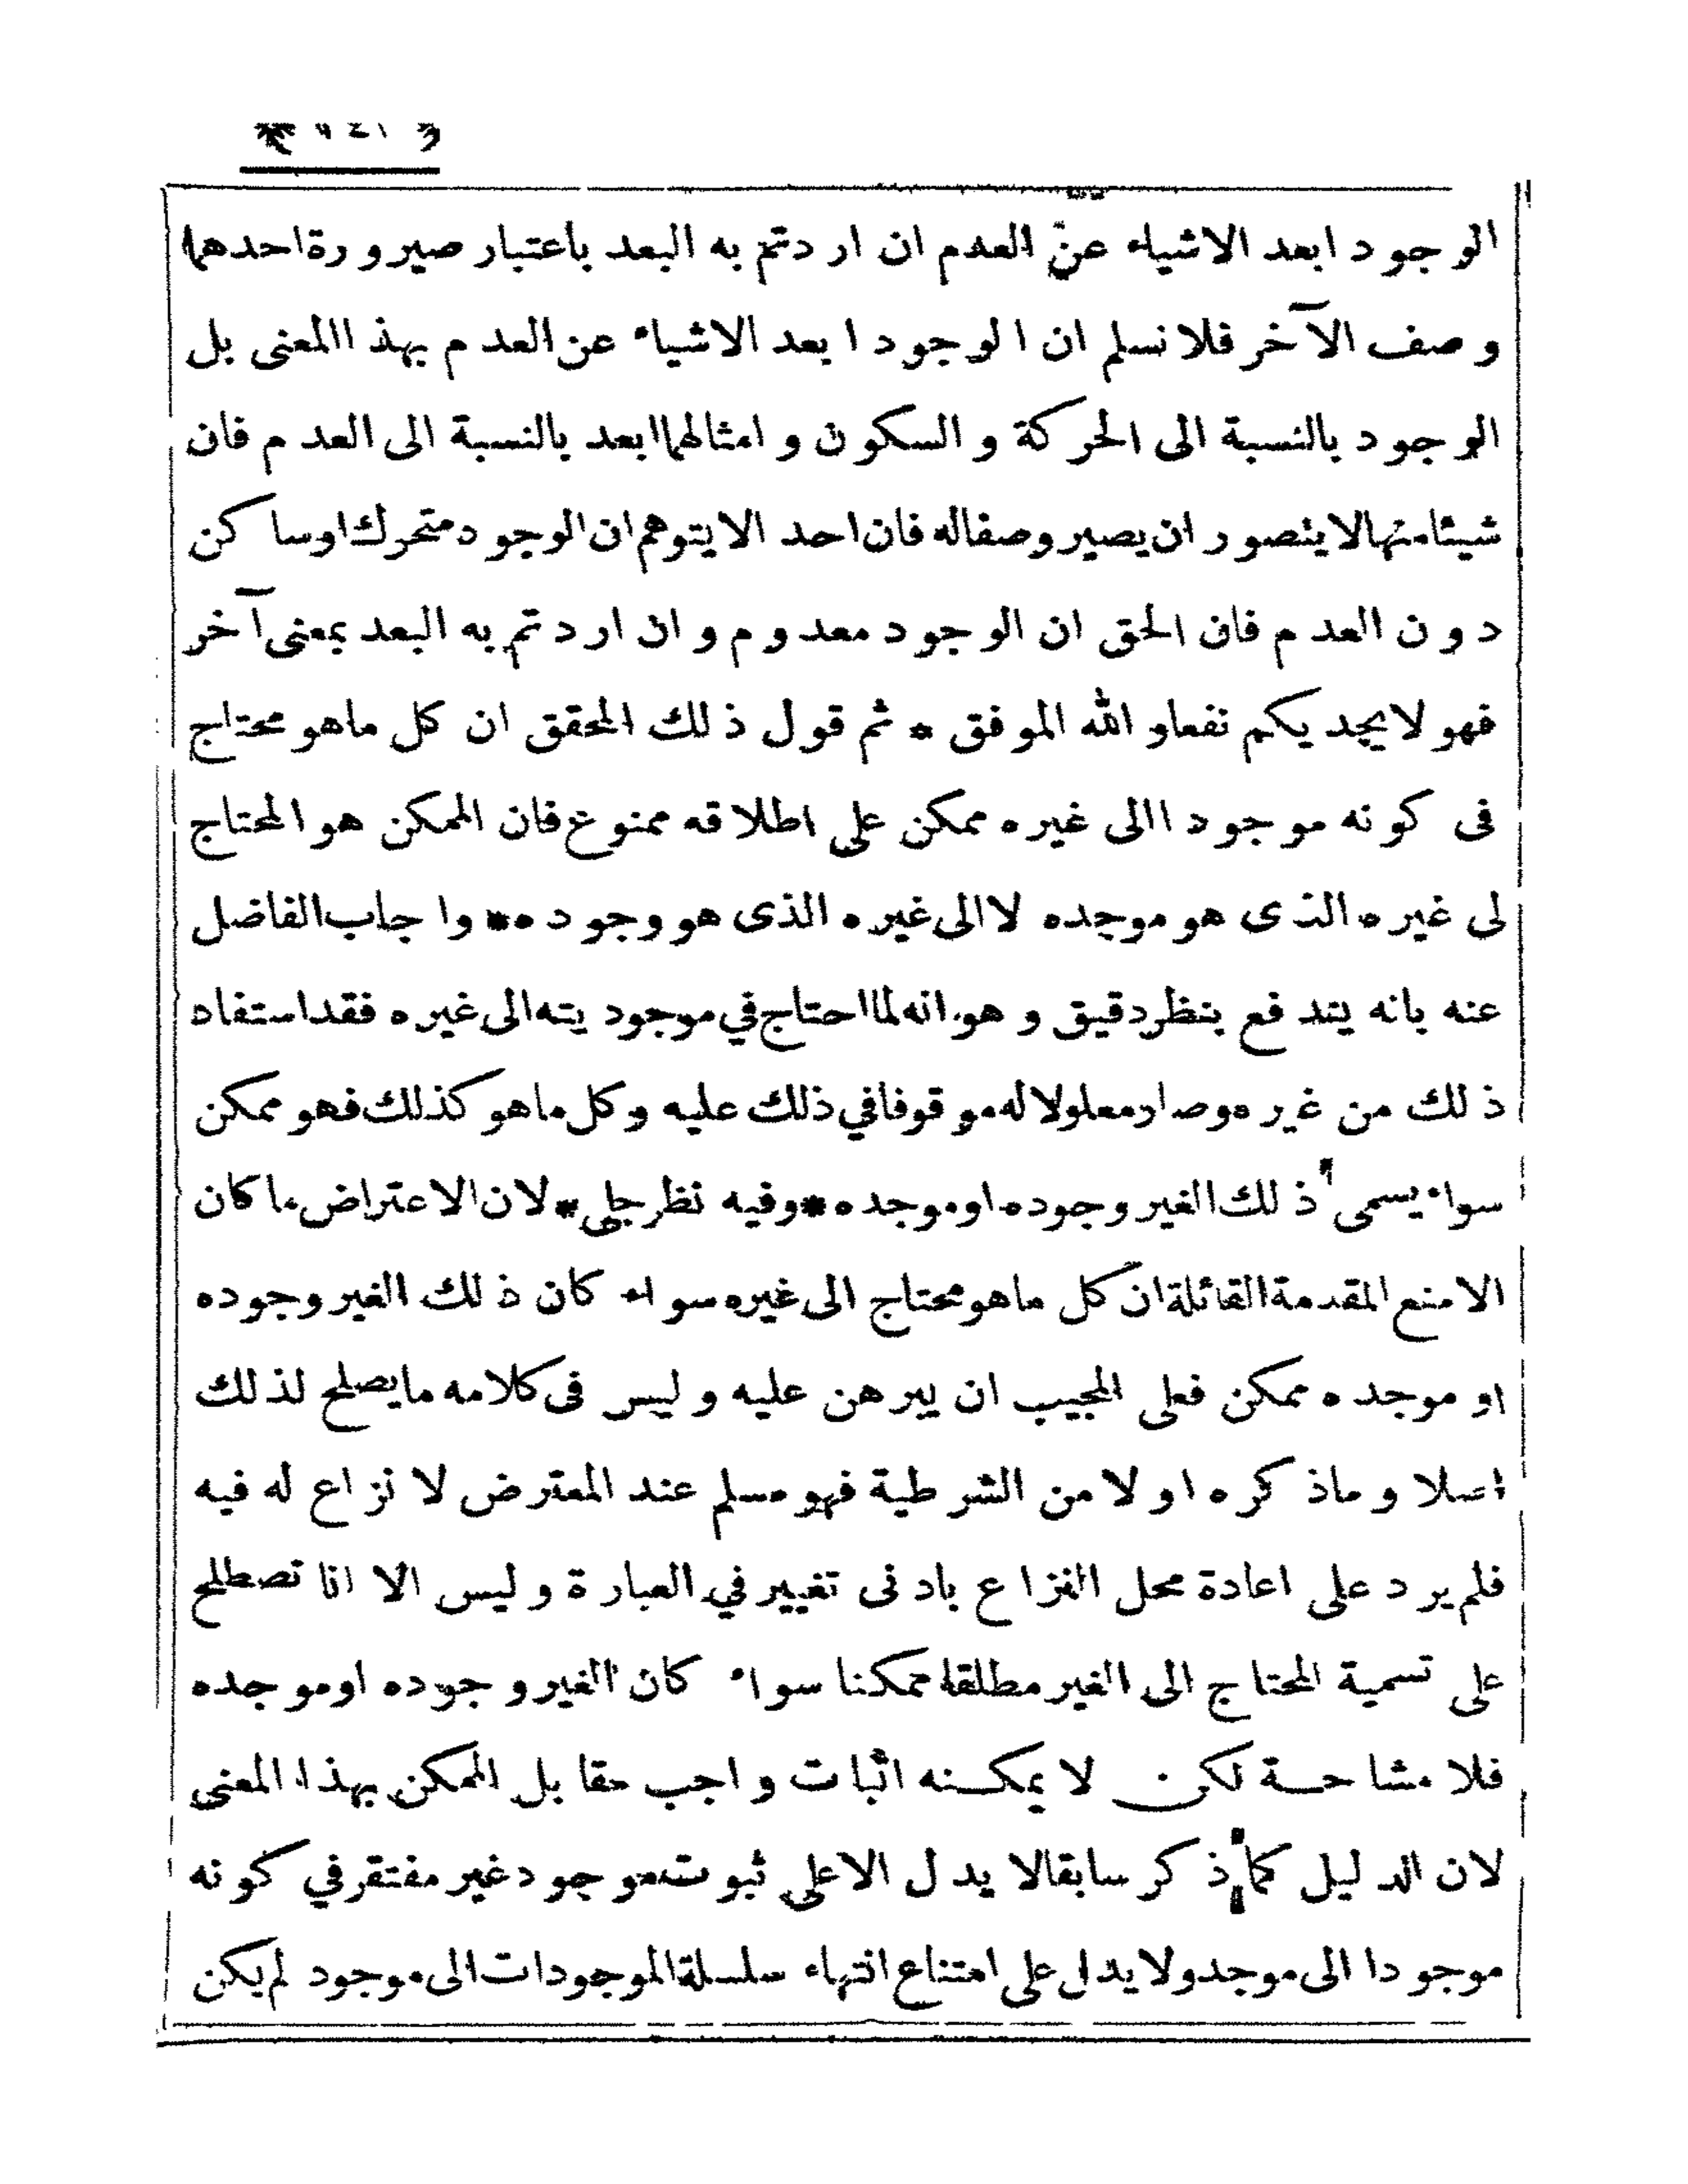 الوجود ابعد الاشياء عن العدم ان اردتم به البعد باعتبار صيرورة احدهما
وصف الآخر فلا نسلم ان الوجود ابعد الاشياء عن العدم بهذا المعنى بل
الوجود بالنسبة الى الحركة و السكون و امثالهما ابعد بالنسبة الى العدم فان
شيئا منها لا يتصور ان يصير وصفا له فان احدا لا يتوهم ان الوجود متحرك او ساكن
دون العدم فان الحق ان الوجود معدوم و ان اردتم به البعد بمعنى آخر
فهو لا يجديكم نفعا و الله الموفق * ثم قول ذلك المحقق ان كل ما هو محتاج
فى كونه موجودا الى غيره ممكن على اطلاقه ممنوع فان الممكن هو المحتاج
لى غيره الذى هو موجده لا الى غيره الذى هو وجوده * واجاب الفاضل
عنه بانه يندفع بنظر دقيق و هو انه لما احتاج في موجوديته الى غيره فقد استفاد
ذلك من غيره وصار معلولا له موقوفا في ذلك عليه وكل ما هو كذلك فهو ممكن
سواء يسمى ذلك الغير وجوده او موجده * وفيه نظر جلى * لان الاعتراض ما كان
الا منع المقدمة القائلة ان كل ما هو محتاج الى غيره سواء كان ذلك الغير وجوده
او موجده ممكن فعلى المجيب ان يبرهن عليه و ليس فى كلامه ما يصلح لذلك
اصلا و ما ذكره اولا من الشرطية فهو مسلم عند المعترض لا نزاع له فيه
فلم يرد على اعادة محل النزاع بادنى تغيير في العبارة و ليس الا انا نصطلح
على تسمية المحتاج الى الغير مطلقا ممكنا سواء كان الغير وجوده او موجده
فلا مشاحة لكن لا يمكنه اثبات واجب مقابل الممكن بهذا المعنى
لان الدليل كما ذكر سابقا لا يدل الا على ثبوت موجود غير مفتقر في كونه
موجودا الى موجد ولا يدل على امتناع انتهاء سلسلة الموجودات الى موجود لم يكن